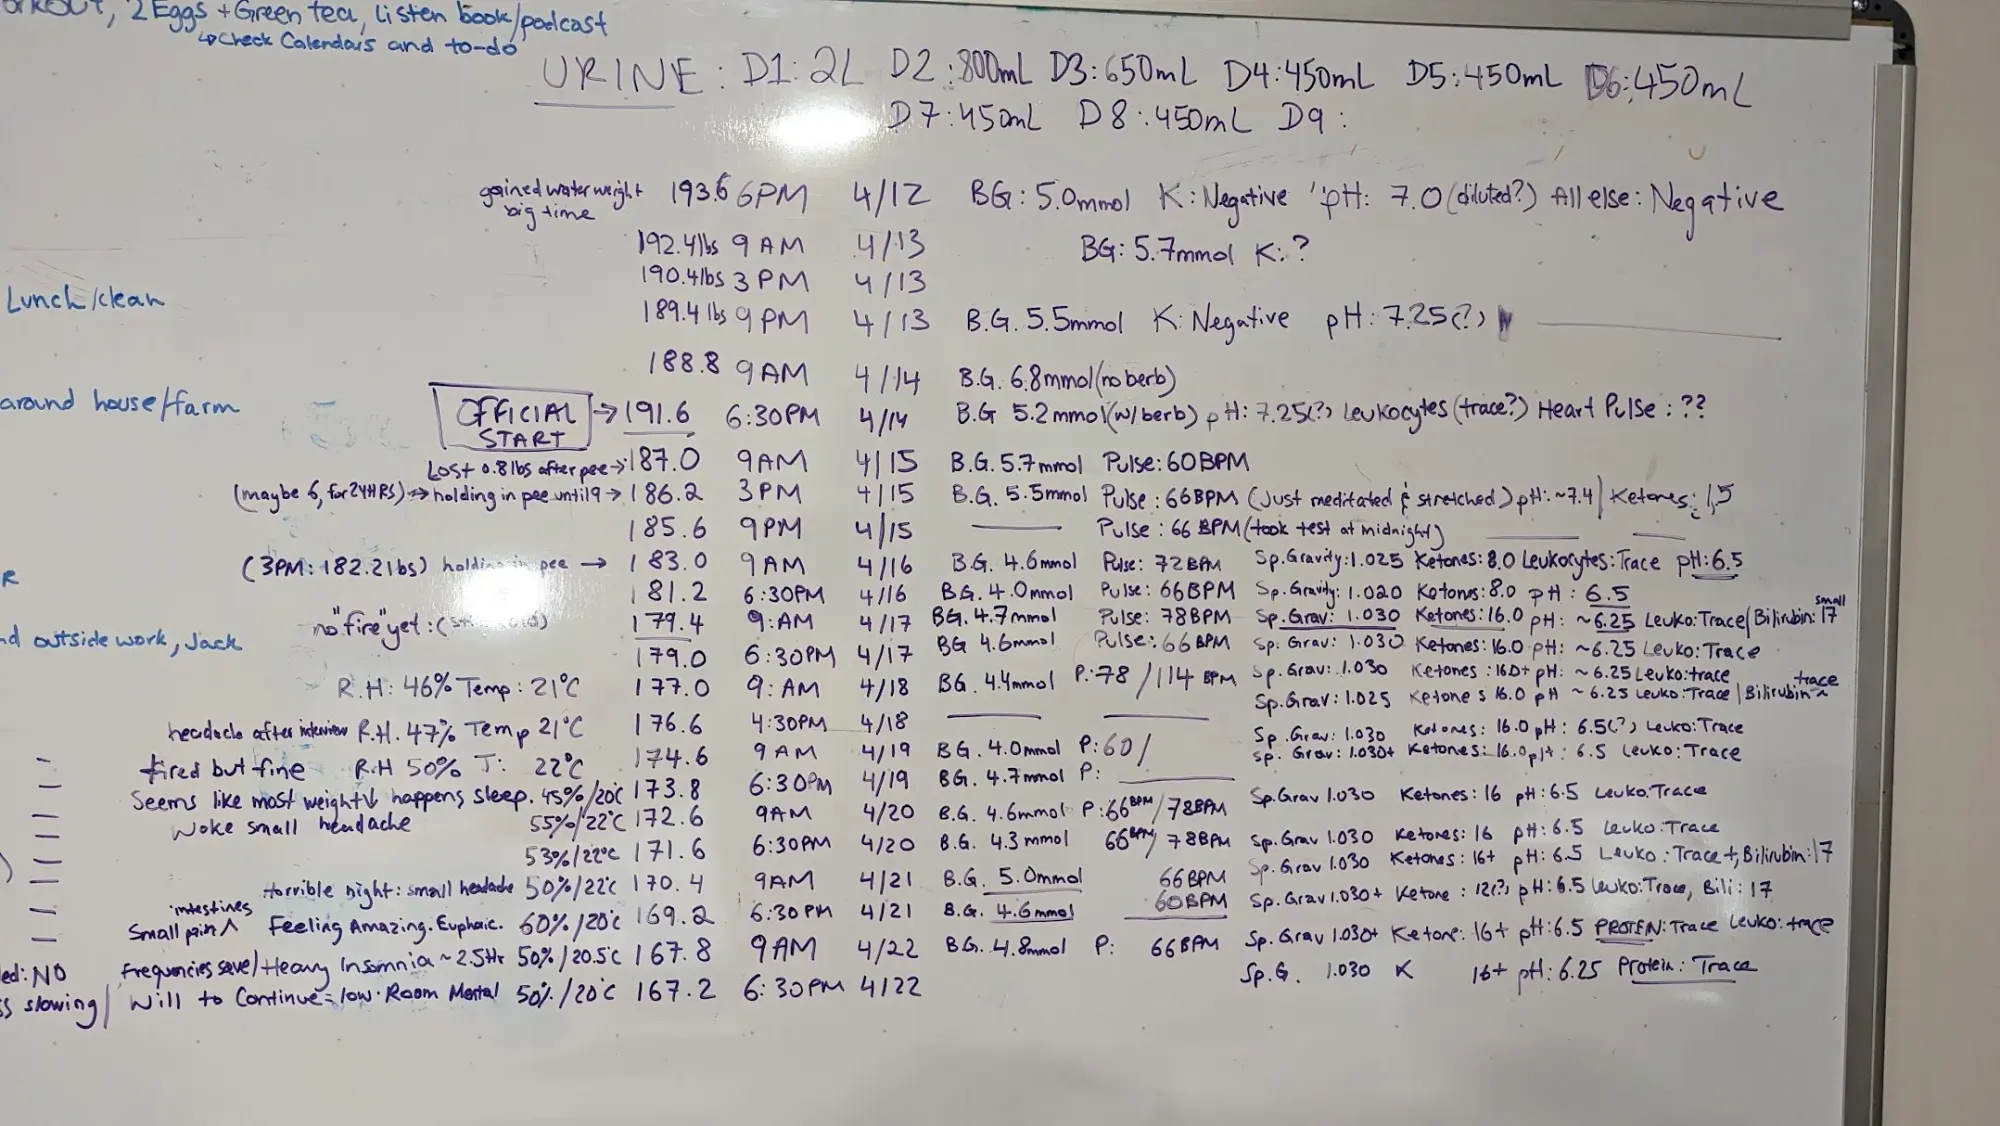 orkout, 2 Eggs + Green tea, listen book/podcast
↳ Check Calendars and to-do
URINE: D1: 2L D2: 800mL D3: 650mL D4: 450mL D5: 450mL D6: 450mL
D7: 450mL D8: 450mL D9:
gained water weight big time 193.6 6PM 4/12 BG: 5.0mmol K: Negative pH: 7.0 (diluted?) All else: Negative
192.4lbs 9AM 4/13 BG: 5.7mmol K: ?
190.4lbs 3PM 4/13
Lunch/clean
189.4lbs 9PM 4/13 B.G. 5.5mmol K: Negative pH: 7.25(?)
188.8 9AM 4/14 B.G. 6.8mmol (no berb)
around house/farm
OFFICIAL START → 191.6 6:30PM 4/14 B.G 5.2mmol (w/berb) pH: 7.25(?) Leukocytes (trace?) Heart Pulse: ??
Lost 0.8lbs after pee → 187.0 9AM 4/15 B.G. 5.7mmol Pulse: 60BPM
(maybe 6, for 24HRS) → holding in pee until 9 → 186.2 3PM 4/15 B.G. 5.5mmol Pulse: 66BPM (Just meditated & stretched) pH: ~7.4 | Ketones: 1.5
185.6 9PM 4/15 Pulse: 66 BPM (took test at midnight)
(3PM: 182.2lbs) holding in pee → 183.0 9AM 4/16 BG. 4.6mmol Pulse: 72BPM Sp.Gravity: 1.025 Ketones: 8.0 Leukocytes: Trace pH: 6.5
181.2 6:30PM 4/16 BG. 4.0mmol Pulse: 66BPM Sp.Gravity: 1.020 Ketones: 8.0 pH: 6.5
no "fire" yet :( 179.4 9:AM 4/17 BG. 4.7mmol Pulse: 78BPM Sp.Grav: 1.030 Ketones: 16.0 pH: ~6.25 Leuko: Trace | Bilirubin: small 17
nd outside work, Jack
179.0 6:30PM 4/17 BG 4.6mmol Pulse: 66BPM Sp. Grav: 1.030 Ketones: 16.0 pH: ~6.25 Leuko: Trace
R.H: 46% Temp: 21°C 177.0 9:AM 4/18 BG. 4.4mmol P: 78/114 BPM Sp. Grav: 1.030 Ketones: 16.0+ pH: ~6.25 Leuko: trace
Sp.Grav: 1.025 Ketones 16.0 pH ~6.25 Leuko: Trace | Bilirubin~ trace
headache after interview R.H. 47% Temp 21°C 176.6 4:30PM 4/18 Sp.Grav: 1.030 Ketones: 16.0 pH: 6.5(?) Leuko: Trace
tired but fine R.H 50% T: 22°C 174.6 9AM 4/19 BG. 4.0mmol P: 60/ Sp. Grav: 1.030+ Ketones: 16.0 pH: 6.5 Leuko: Trace
Seems like most weight↓ happens sleep. 45%/20°C 173.8 6:30PM 4/19 BG. 4.7mmol P: Sp.Grav 1.030 Ketones: 16 pH: 6.5 Leuko: Trace
Woke small headache 55%/22°C 172.6 9AM 4/20 B.G. 4.6mmol P: 66BPM/78BPM Sp.Grav 1.030 Ketones: 16 pH: 6.5 Leuko: Trace
53%/22°C 171.6 6:30PM 4/20 B.G. 4.3mmol 66BPM/78BPM Sp. Grav 1.030 Ketones: 16+ pH: 6.5 Leuko: Trace+, Bilirubin: 17
Horrible night: small headache 50%/22°C 170.4 9AM 4/21 B.G. 5.0mmol 66BPM Sp. Grav 1.030+ Ketone: 12(?) pH: 6.5 Leuko: Trace, Bili: 17
Small pain ^ intestines Feeling Amazing. Euphoic. 60%/20°C 169.2 6:30PM 4/21 B.G. 4.6mmol 60BPM Sp. Grav 1.030+ Ketone: 16+ pH: 6.5 PROTEIN: Trace Leuko: trace
ed: NO Frequencies save/Heavy Insomnia ~2.5Hr 50%/20.5°C 167.8 9AM 4/22 BG. 4.8mmol P: 66BPM Sp.G. 1.030 K 16+ pH: 6.25 Protein: Trace
ss slowing/ Will to Continue = low. Room Mental 50%/20°C 167.2 6:30PM 4/22